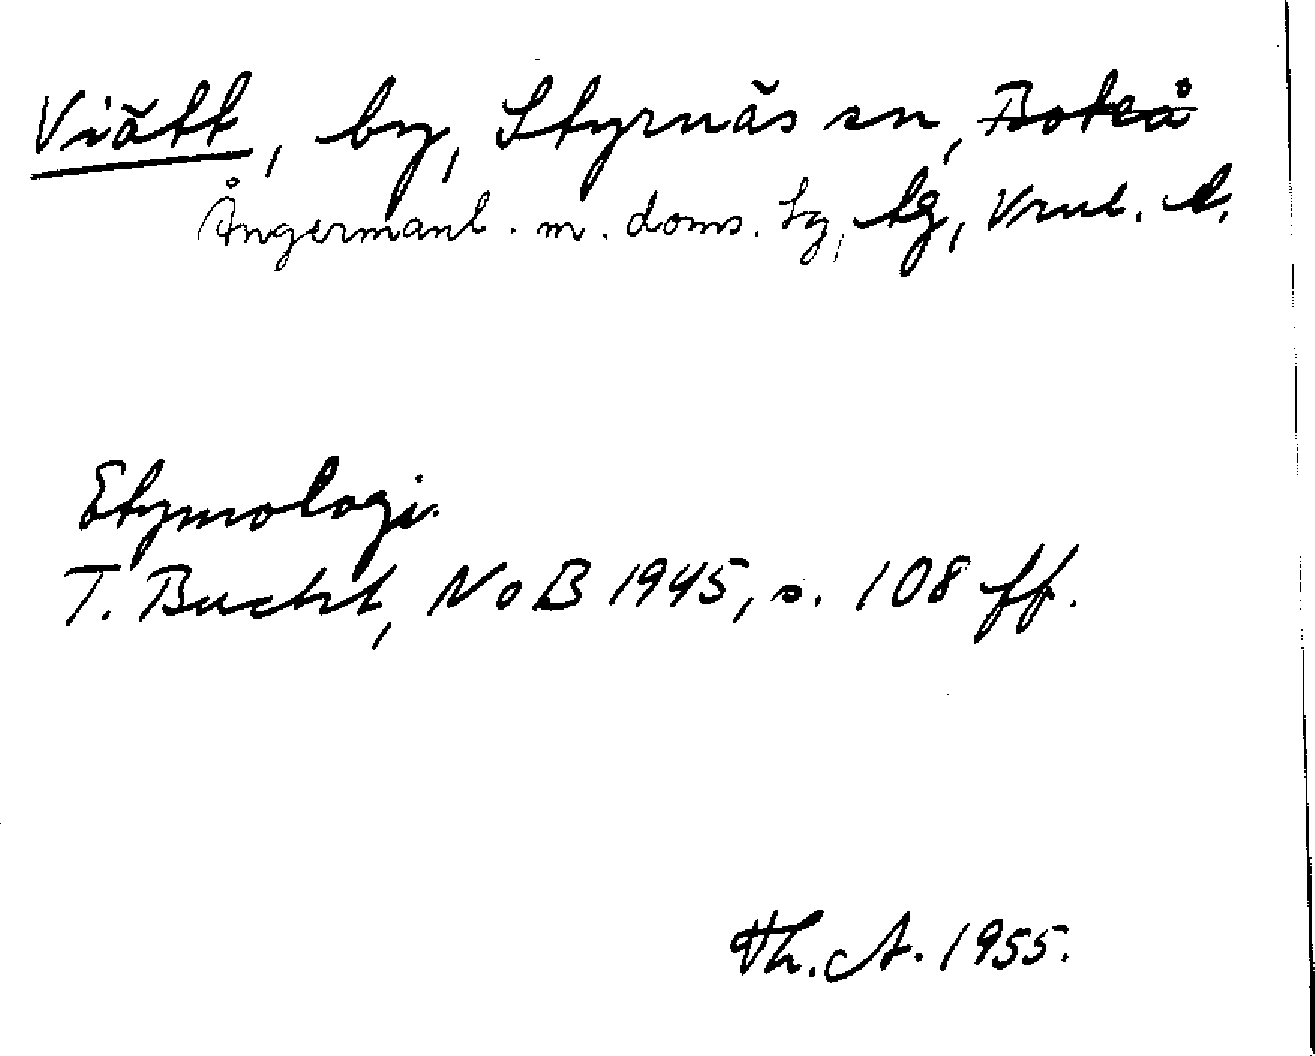 Viätt, by, Styrnäs sn, Boteå
Ångermanl. m. doms. sg, tg, Vnl. l.
Etymologi.
T. Bucht, NoB 1945, s. 108 ff.
Th. A. 1955.